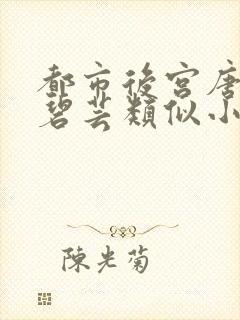 都市後宮唐
碧芸類似小
陳光菊